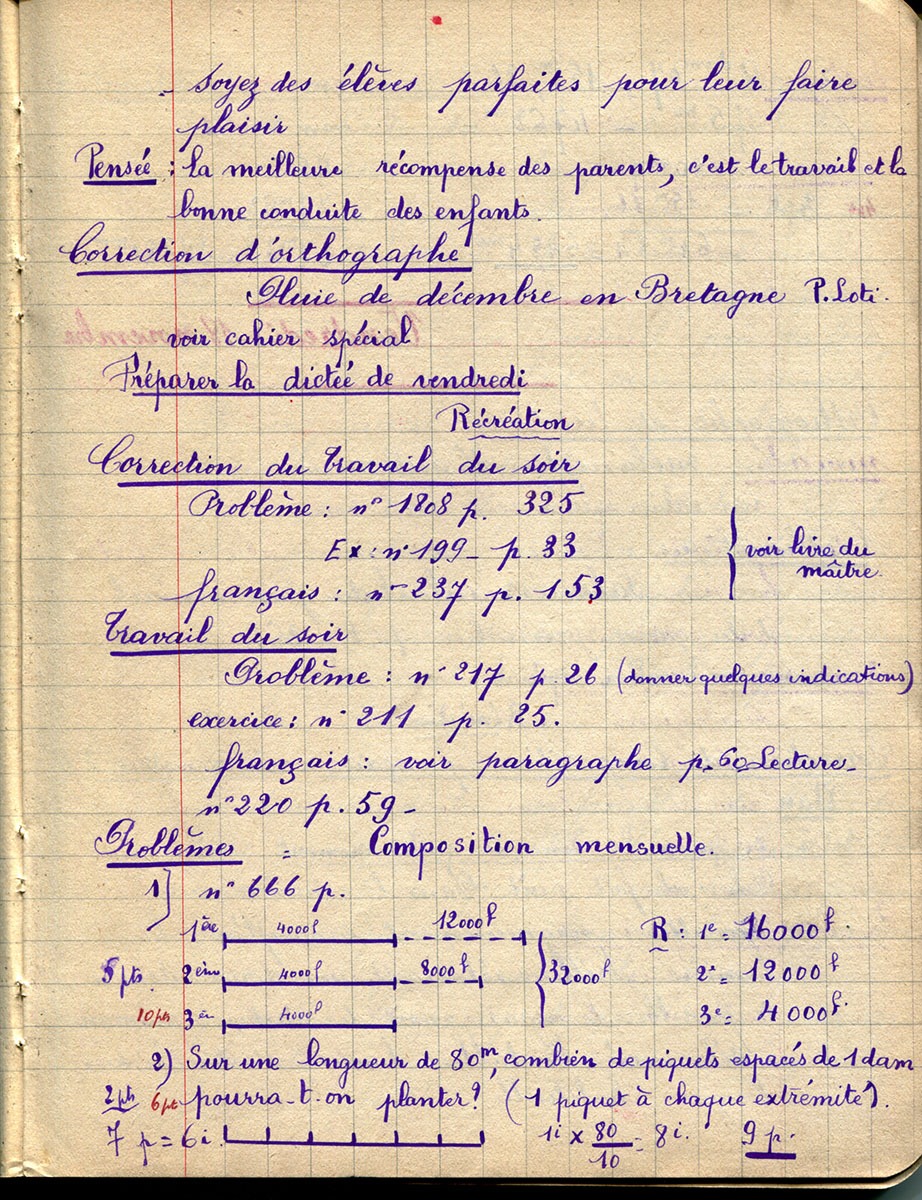 - Soyez des élèves parfaites pour leur faire
plaisir
Pensée : La meilleure récompense des parents, c'est le travail et la
bonne conduite des enfants.
Correction d'orthographe
Pluie de décembre en Bretagne P. Loti.
voir cahier spécial
Préparer la dictée de vendredi
Récréation
Correction du travail du soir
Problème : n° 1808 p. 325
Ex : n° 199 - p. 33
voir livre du
maître.
français : n° 237 p. 153
Travail du soir
Problème : n° 217 p. 26 (donner quelques indications)
exercice : n° 211 p. 25.
français : voir paragraphe p. 60 Lecture -
n° 220 p. 59 -
Problèmes = Composition mensuelle.
1) n° 666 p.
1ère 4000f 12000f R : 1e = 16000f.
5 pts. 2ème 4000f 8000f 32000f 2e = 12000f
10 pts 3e 4000f 3e = 4000f.
2) Sur une longueur de 80m, combien de piquets espacés de 1 dam
2 pts 6 pts pourra-t-on planter ? (1 piquet à chaque extrémité).
7 p = 6 i. 1i x 80/10 = 8 i. 9 p.